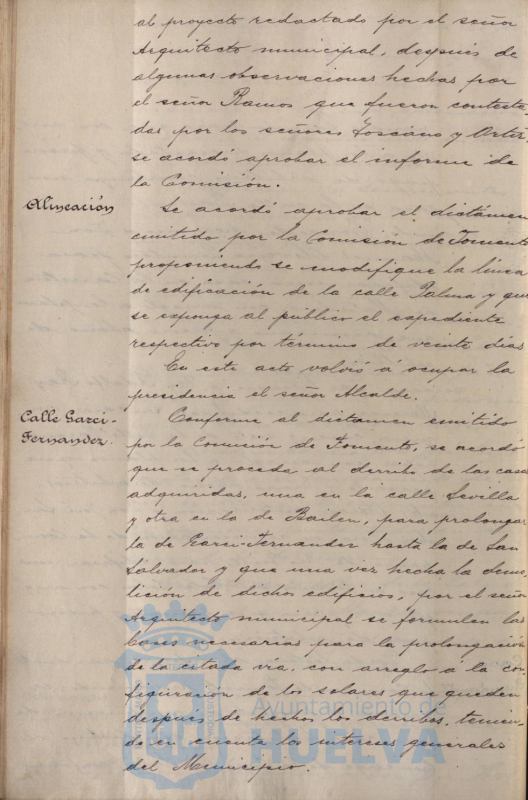 al proyecto redactado por el señor
Arquitecto municipal, después de
algunas observaciones hechas por
el señor Ramos que fueron contesta-
das por los señores Toscano y Ortiz,
se acordó aprobar el informe de
la Comisión.
Alineación
Se acordó aprobar el dictámen
emitido por la Comisión de Fomento
proponiendo se modifique la línea
de edificación de la calle Palma y que
se exponga al público el expediente
respectivo por término de veinte días
En este acto volvió á ocupar la
presidencia el señor Alcalde.
Calle Garci-
Fernandez.
Conforme al dictamen emitido
por la Comisión de Fomento, se acordó
que se proceda al derribo de las casas
adquiridas, una en la calle Sevilla
y otra en la de Bailen, para prolongar
la de Garci-Fernandez hasta la de San
Salvador y que una vez hecha la demo-
lición de dichos edificios, por el señor
Arquitecto municipal se formulen las
bases necesarias para la prolongación
de la citada vía, con arreglo á la con-
figuración de los solares que queden
después de hechos los derribos, tenien-
do en cuenta los intereses generales
del Municipio.
Ayuntamiento de
HUELVA